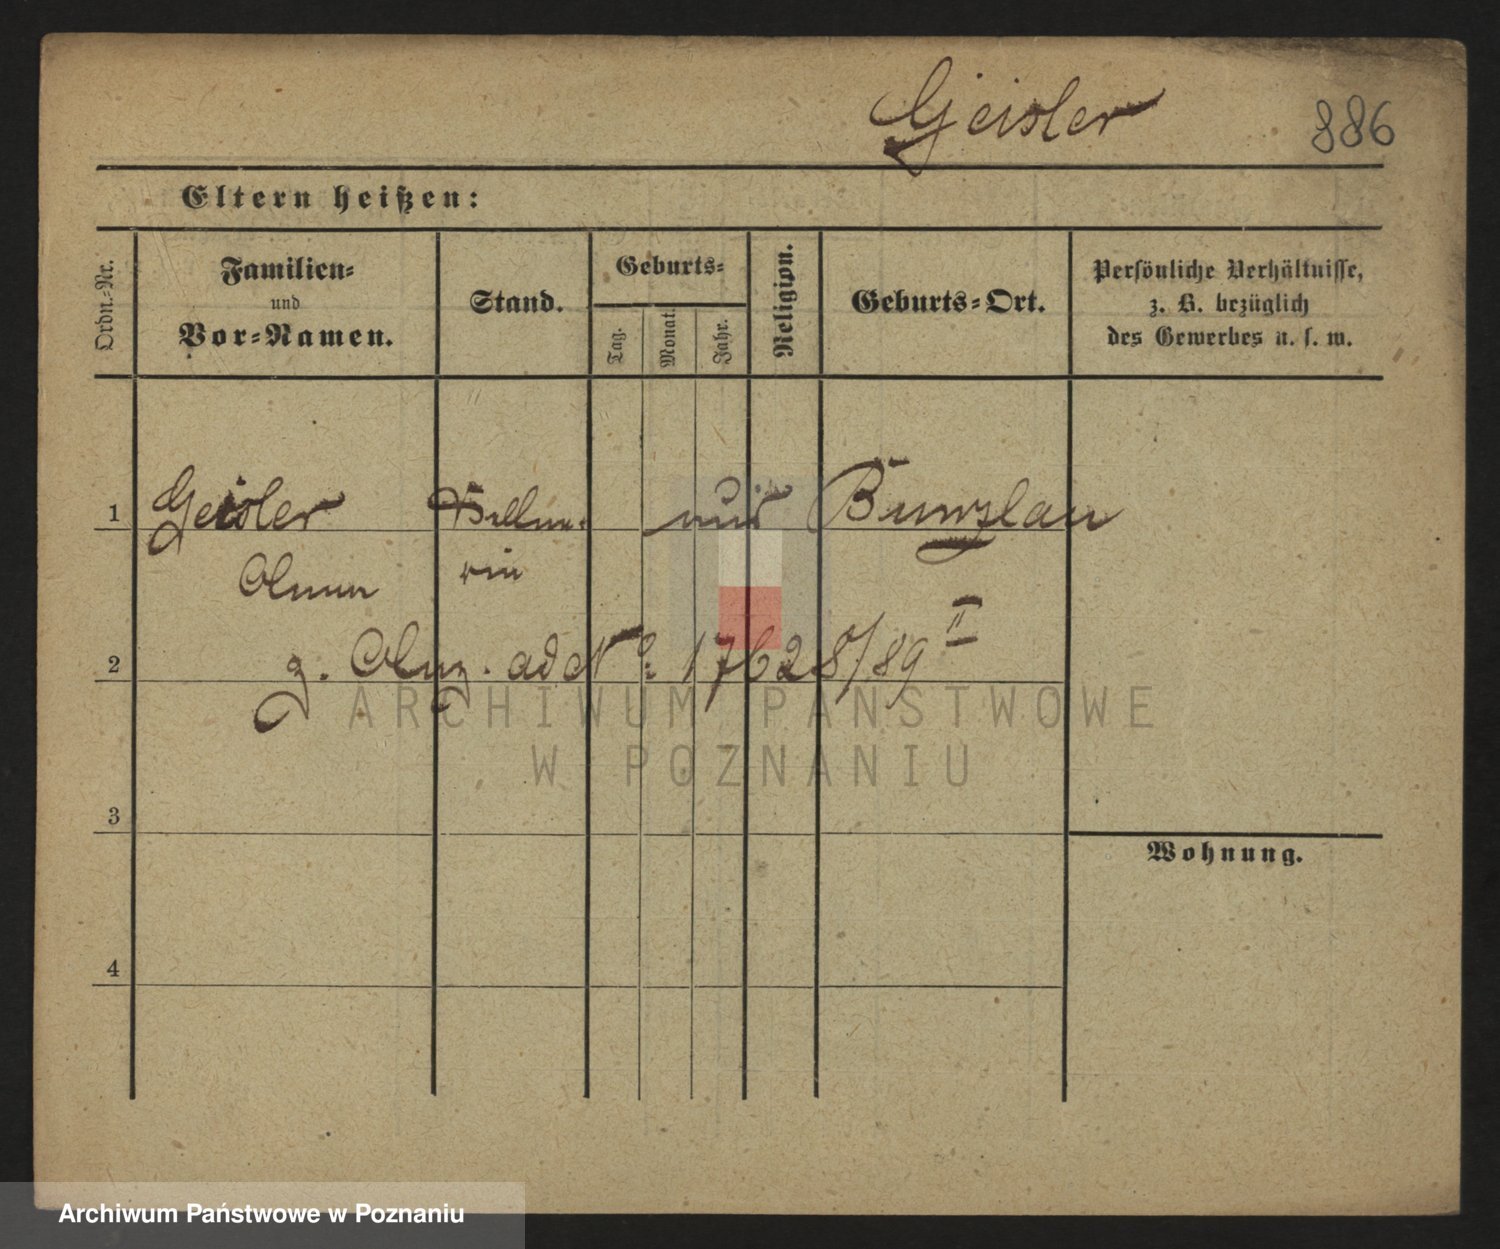 Geisler 886
Eltern heißen:
Ordn.-Nr.
Familien-
und
Vor-Namen.
Stand.
Geburts-
Tag.
Monat.
Jahr.
Religion.
Geburts-Ort.
Persönliche Verhältnisse,
z. B. bezüglich
des Gewerbes u. s. w.
1 Geisler Kellne- aus Bunzlau
rin
2 z. ad No 17628/89 II
3
4
Wohnung.
ARCHIWUM PAŃSTWOWE
W POZNANIU
Archiwum Państwowe w Poznaniu